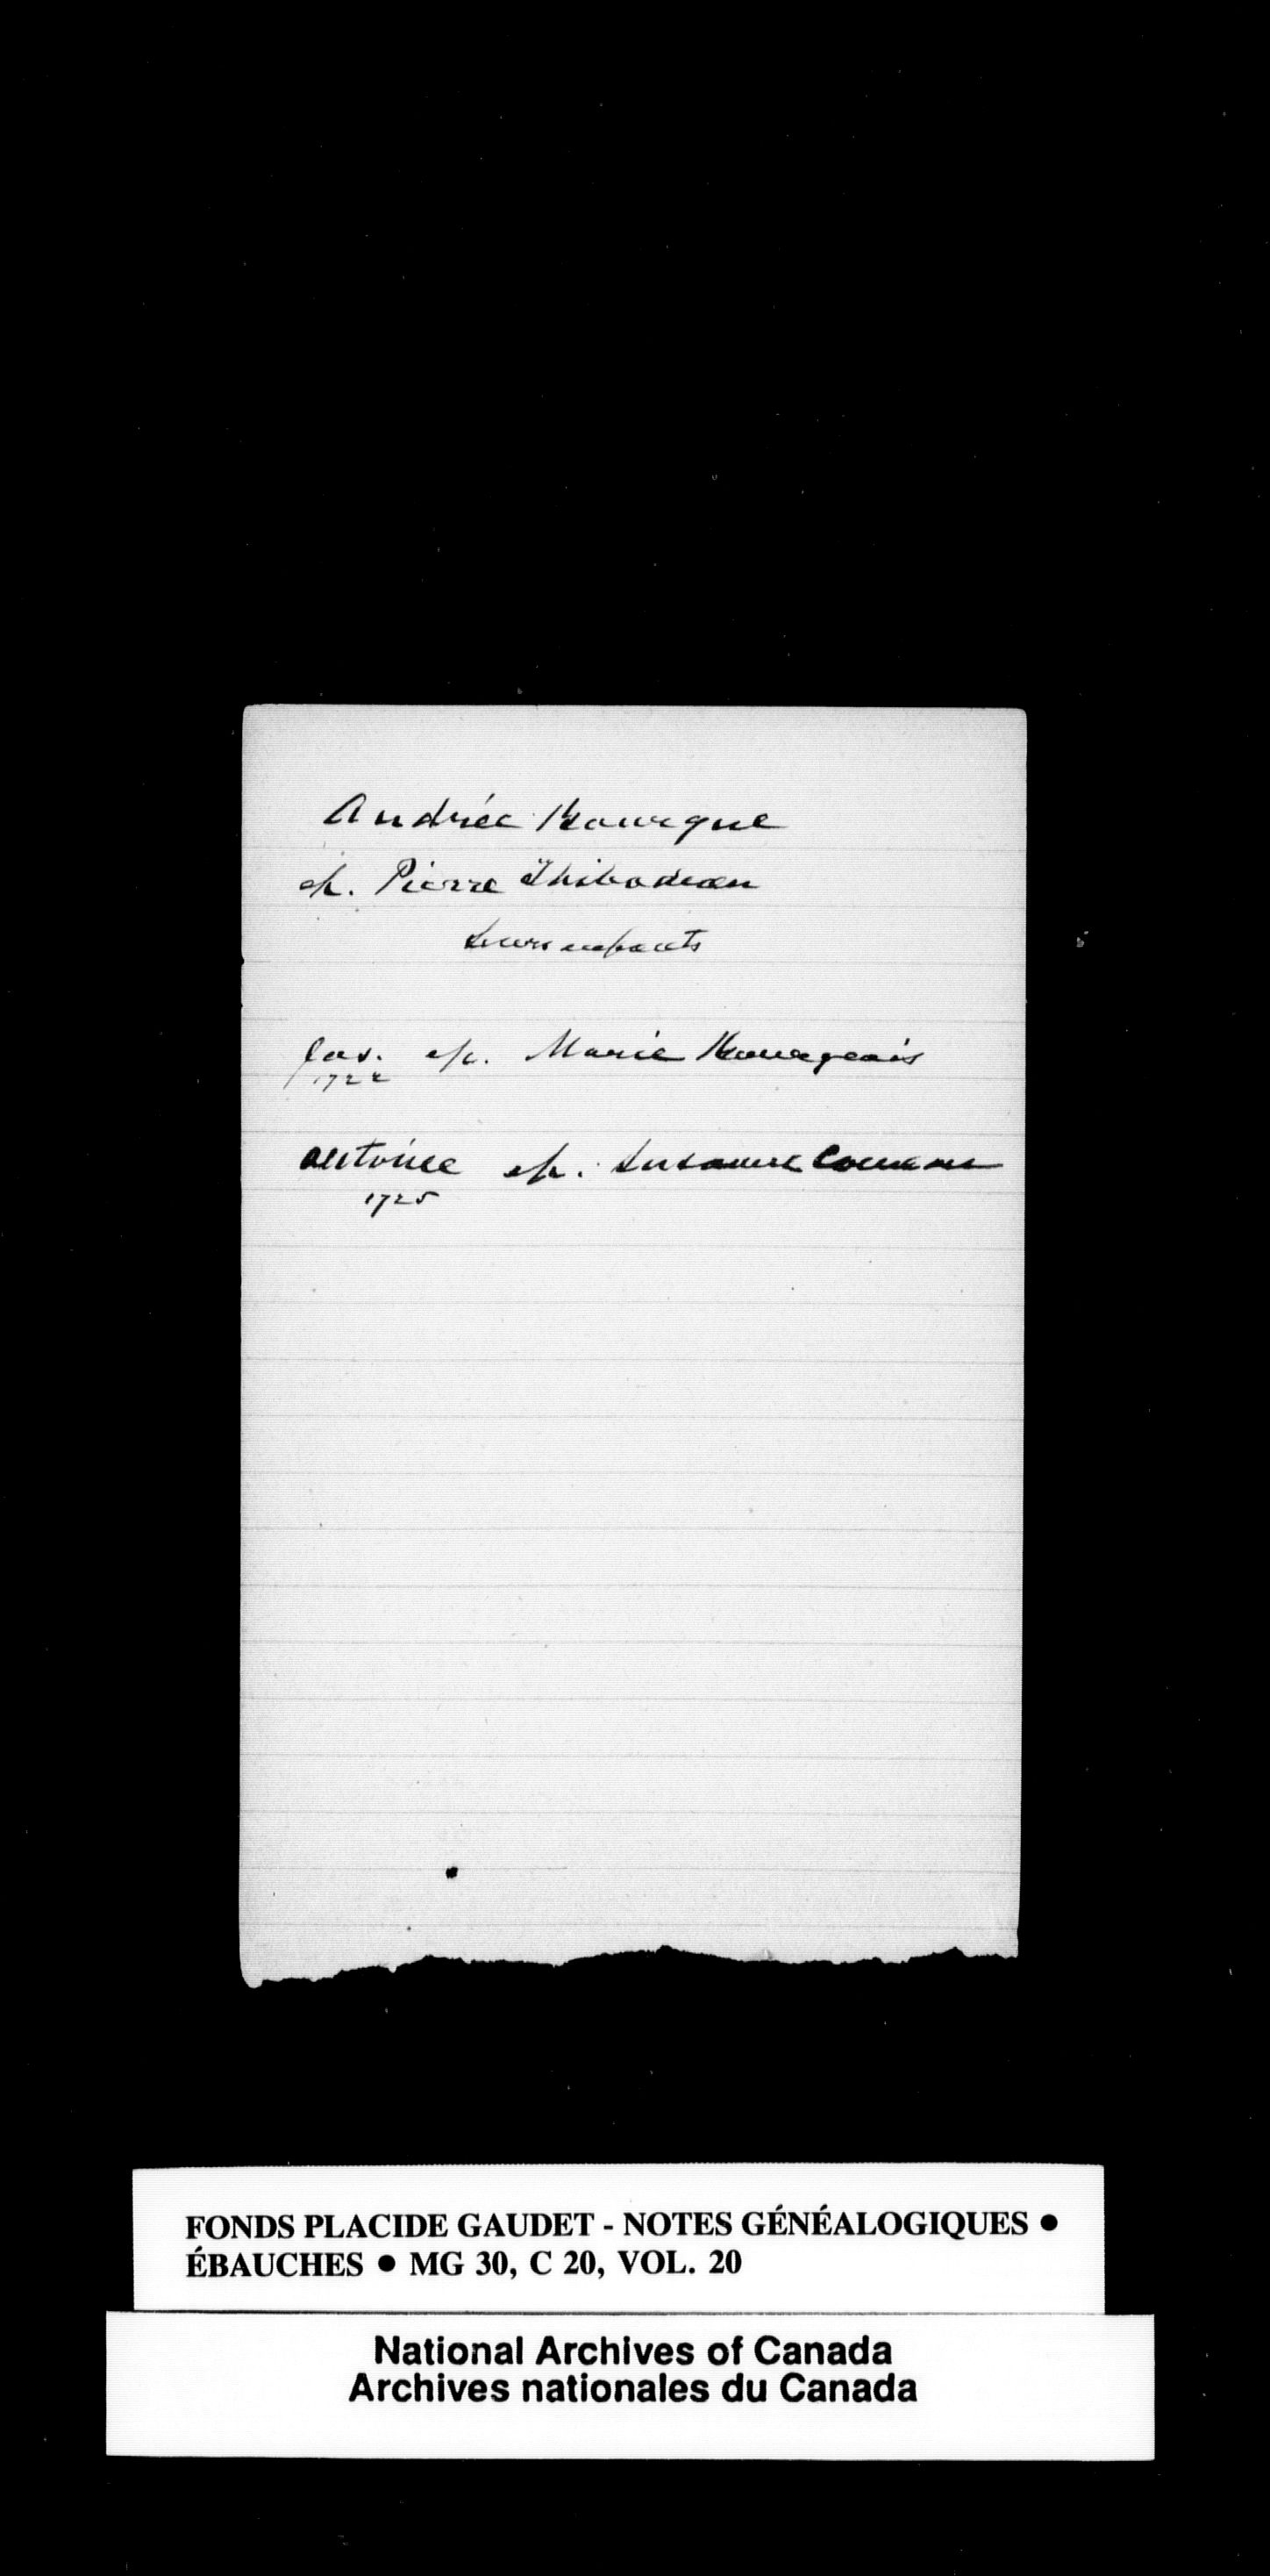 Andrée Bourgue
ép. Pierre Thibodeau
Leurs enfants
Jos. ép. Marie Bourgeois
1722
Antoine ép. Susanne Comeau
1725
FONDS PLACIDE GAUDET - NOTES GÉNÉALOGIQUES ●
ÉBAUCHES ● MG 30, C 20, VOL. 20
National Archives of Canada
Archives nationales du Canada